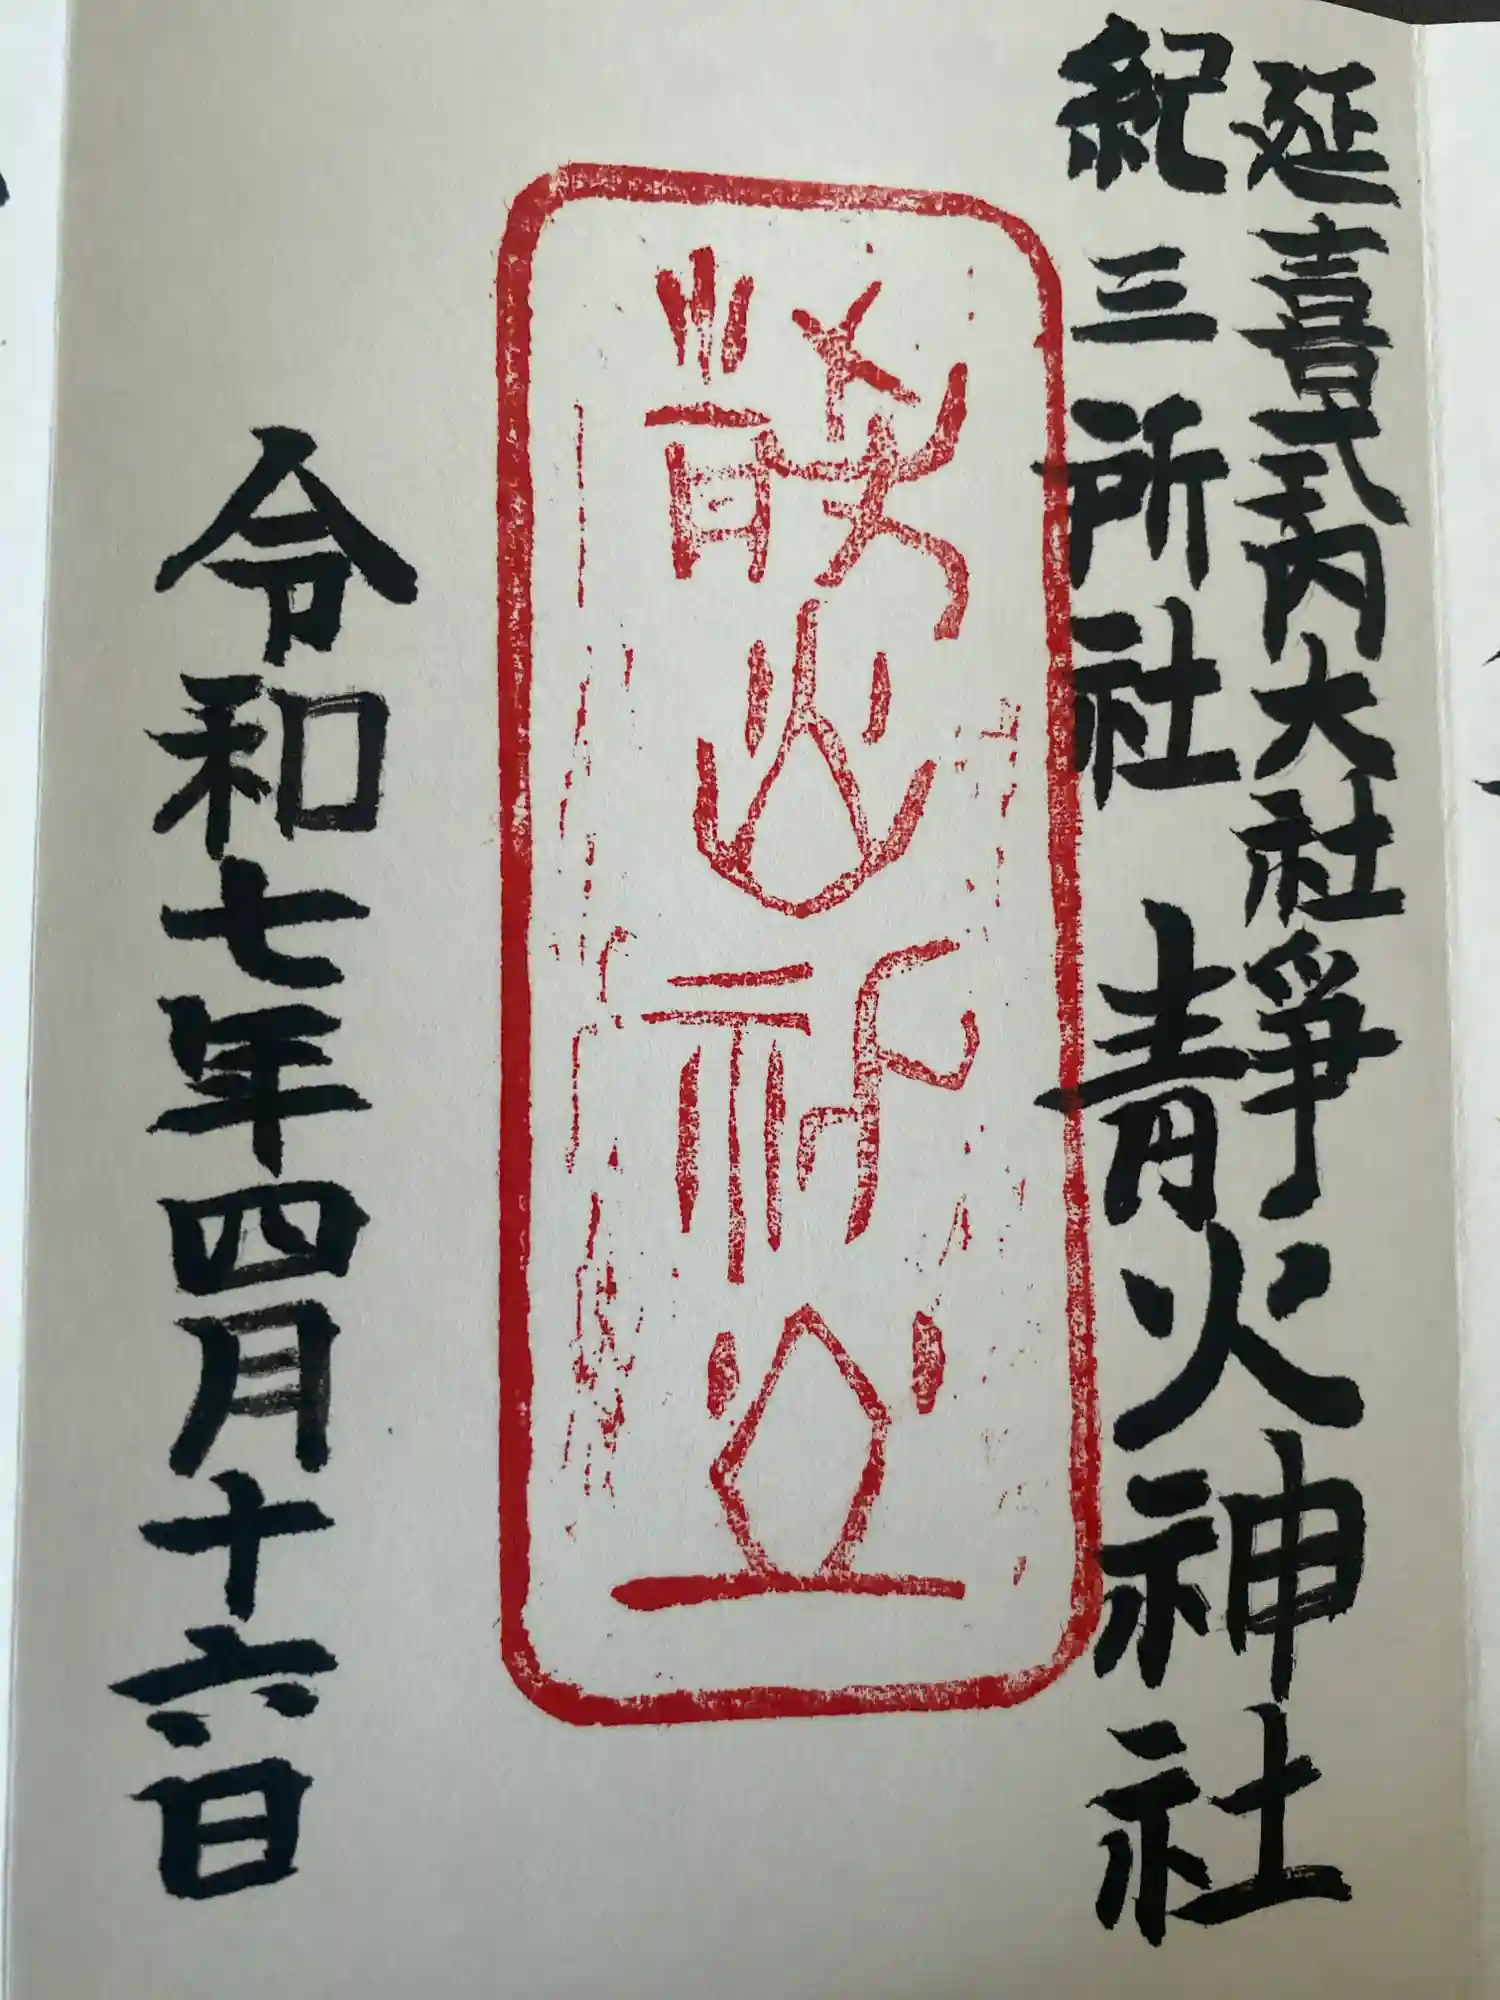 延喜式内大社
紀三所社
靜火神社
靜火神社
令和七年四月十六日